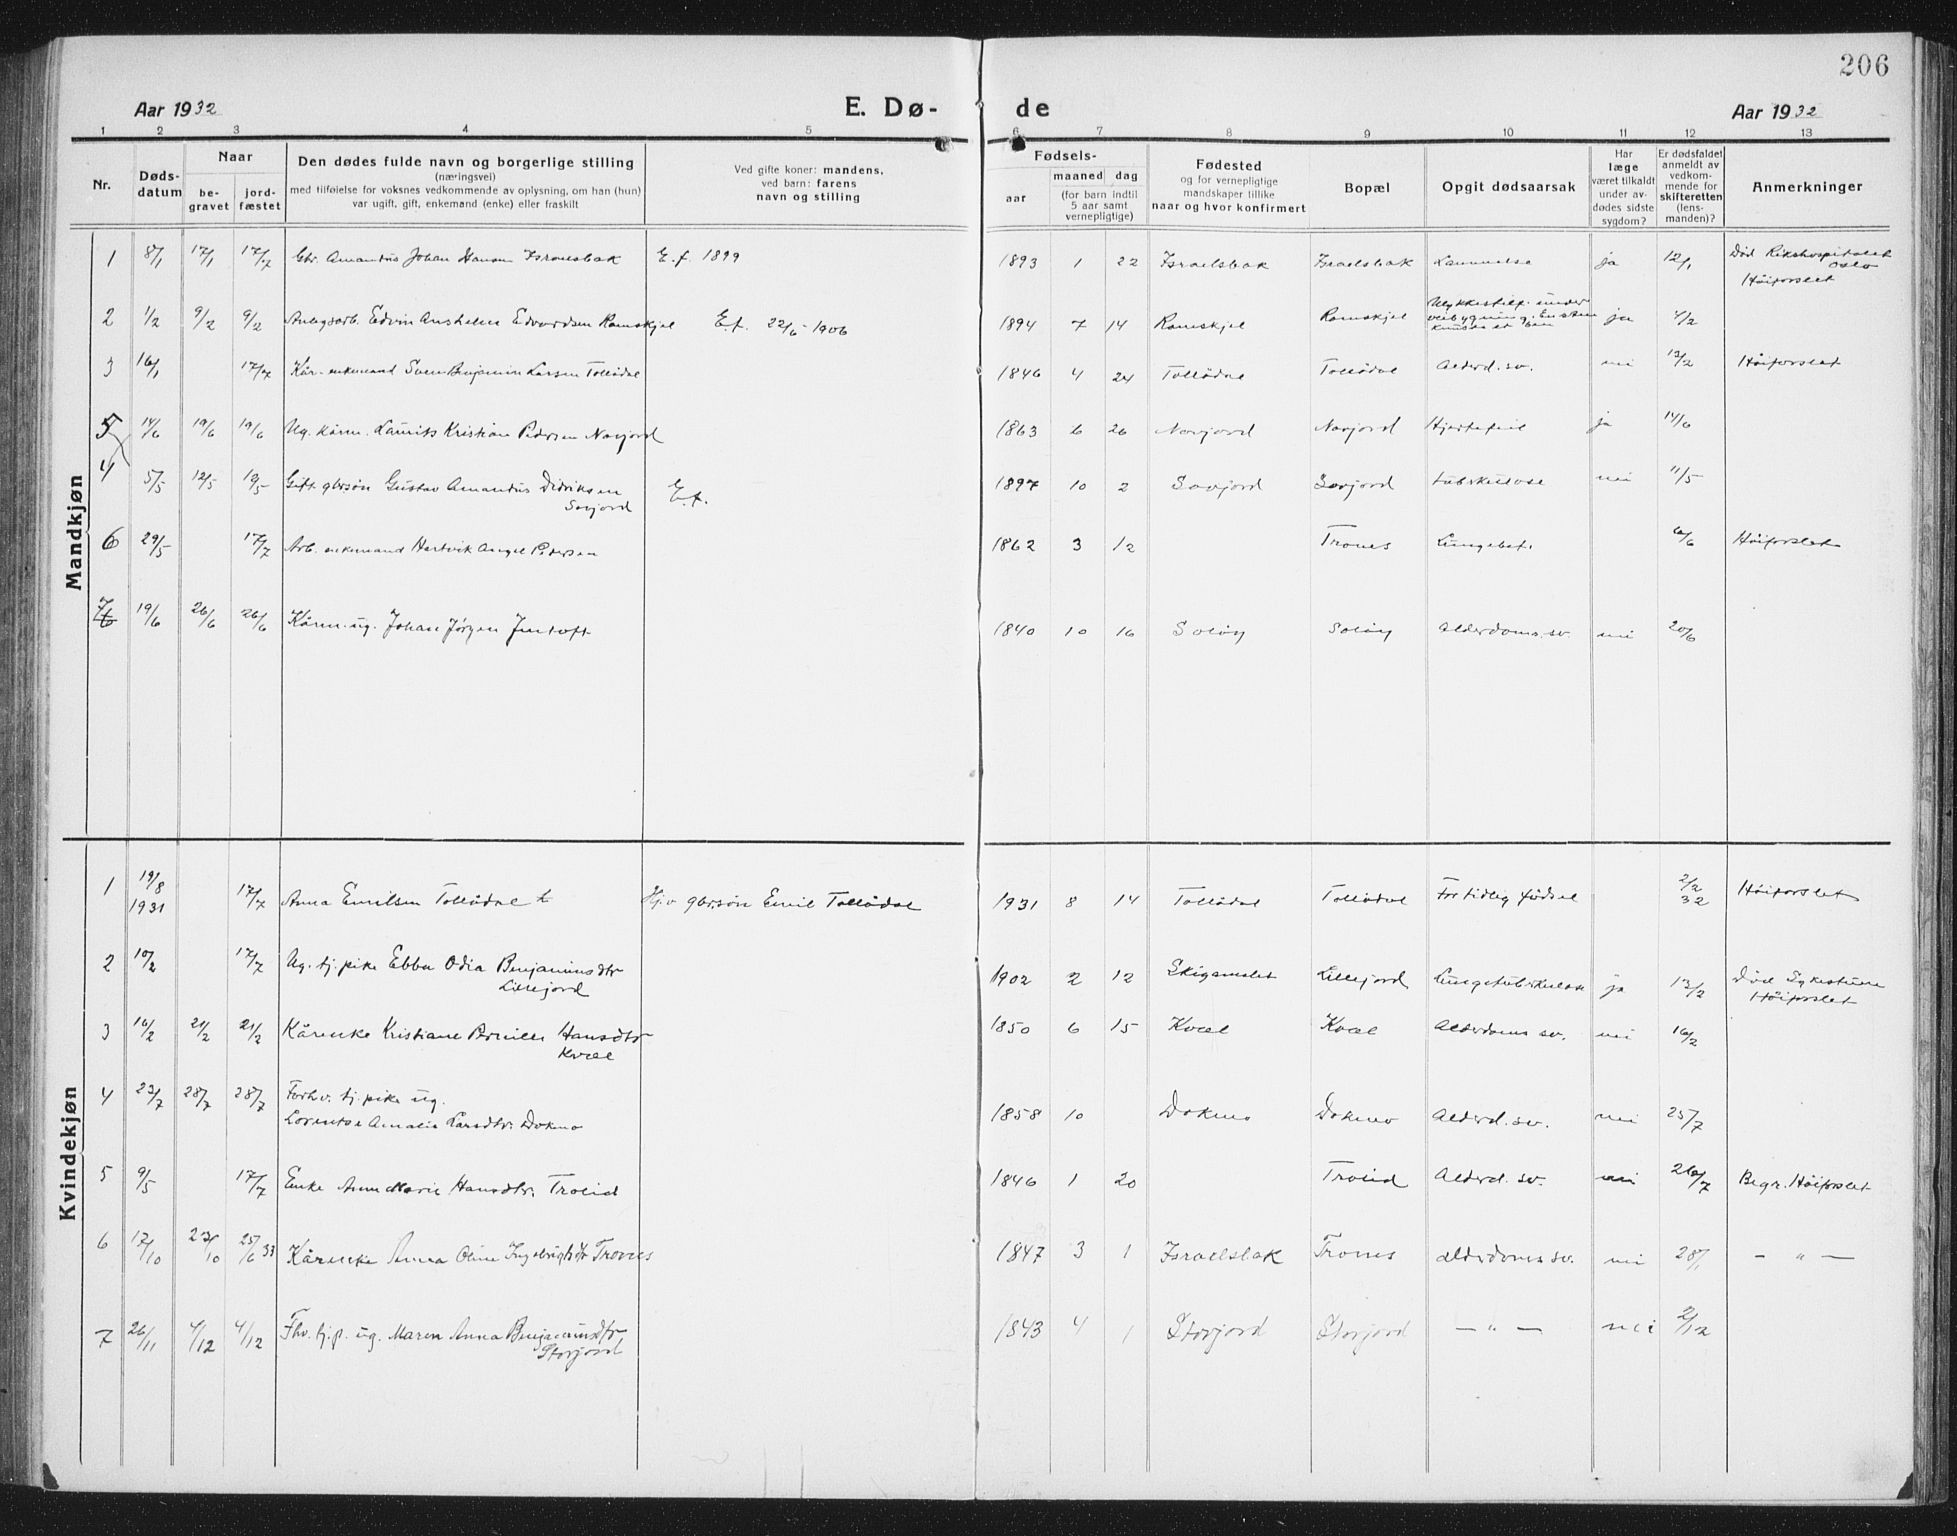 206
Aar 1932 E. Dø- de Aar 1932
1 2 3 4 5 6 7 8 9 10 11 12 13
Nr. Døds-datum Naar be-gravet jord-fæstet Den dødes fulde navn og borgerlige stilling (næringsvei) med tilføielse for voksnes vedkommende av oplysning, om han (hun) var ugift, gift, enkemand (enke) eller fraskilt Ved gifte koner: mandens, ved barn: farens navn og stilling Fødsels- aar maaned dag (for barn indtil 5 aar samt vernepligtige) Fødested og for vernepligtige mandskaper tillike naar og hvor konfirmert Bopæl Opgit dødsaarsak Har læge været tilkaldt under av-dødes sidste sygdom? Er dødsfaldet anmeldt av vedkom-mende for skifteretten (lens-manden)? Anmerkninger
Mandkjøn
1 8/1 17/1 17/7 Gbr. Amandus Johan Hansen Israelsbak E. f. 1899 1893 1 22 Israelsbak Israelsbak ja 12/1 Död Rikshospitalet Oslo Høiforslet
2 1/2 9/2 9/2 Anlegsarb. Edvin Anshelm Edvardsen Ramskjel E.f. 22/6-1906 1894 7 14 Ramskjel Ramskjel Ulykkestilf. under veibygning. En sten knuste et ben ja 4/2
3 16/1 17/7 Kår-enkemand Sven Benjamin Larsen Tollådal 1846 4 24 Tollådal Tollådal Alderd. sv. nei 13/2 Høiforslet
5 14/6 19/6 19/6 Ug. kårm. Laurits Kristian Pedersen Novjord 1863 6 26 Novjord Novjord Hjertefeil ja 14/6
4 5/5 12/5 12/5 Gift gbrsön Gustav Amandus Didriksen Sovjord E.f. 1897 10 2 Sovjord Sovjord tubekulose nei 11/5
6 29/5 17/7 Arb. enkemand Hartvik Angel Pedersen 1862 3 12 Trones Lungebet. 6/6 Høiforslet
7 19/6 26/6 26/6 Kårm. ug. Johan Jörgen Jentoft 1840 10 16 Soløy Soløy Alderdoms. sv. nei 20/6
Kvindekjøn
1 19/8 1931 17/7 Anna Emilsen Tollådal Hj.v gbrsön Emil Tollådal 1931 8 14 Tollådal Tollådal For tidlig födsel 2/2 32 Høiforslet
2 10/2 17/7 Ug. tj. pike Ebba Odia Benjaminsdtr Lillejord 1902 2 12 Lillejord Lungetuberkulose ja 13/2 Död Sykestuen Høiforslet
3 16/2 21/2 21/2 Kårenke Kristiane Pernille Hansdtr Kvæl 1850 6 15 Kvæl Kvæl Alderdoms sv. nei 16/2
4 23/7 28/7 28/7 Forhv. tj. pike ug.
Lorentse Amalie Larsdtr. Dokmo 1858 10 Dokmo Dokmo Alderd. sv. nei 25/7
5 9/5 17/7 Enke Anne Marie Hansdtr. Trolid 1846 1 20 Trolid Alderd. sv. nei 26/7 Begr. Høiforslet
6 17/10 23/10 25/6 33 Kårenke Anna Oline Ingebrigtsdtr Trones 1847 3 1 Israelsbak Trones alderdoms sv. nei 28/1 — " —
7 26/11 4/12 4/12 Fhv. tj.p. ug. Maren Anna Benjaminsdtr Storjord 1843 4 1 Storjord Storjord — " — nei 2/12